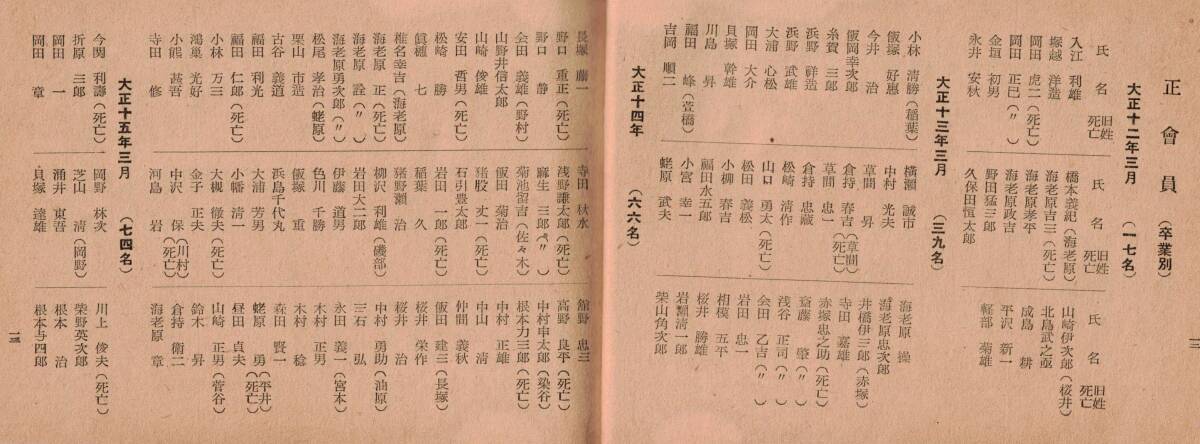 正會員（卒業別）
大正十二年三月（一七名）
氏名 旧姓死亡
入江利雄
堀越洋造
岡田虎二（死亡）
岡田正巳（〃）
金垣初男
永井安秋
氏名 旧姓死亡
橋本義祀（海老原）
海老原吉三（死亡）
海老原孝平
海老原政吉
野田猛三郎
久保田恒太郎
氏名 旧姓死亡
山崎伊次郎（桜井）
北島武之亟
成島耕
平沢新一
軽部菊雄
大正十三年三月（三九名）
小林清勝（稲葉）
今井治
飯塚好惠
飯岡幸次郎
糸賀三郎
浜野祥造
浜野武雄
大浦心松
岡田大介
貝塚幹雄
川島昇
福田峰（萱橋）
吉岡順二
横瀬誠市
中村光夫
草間昇
倉持春吉（草間）（死亡）
草間忠一
倉持忠蔵
松崎清作
山口勇太（死亡）
田義松
小柳春吉
福田水五郎
小宮幸一
蛯原武夫
海老原操
海老原忠次郎
井橋伊三郎（赤塚）
寺田嘉雄
赤塚忠之助（死亡）
斎藤肇（〃）
浅谷正司（〃）
会田乙吉（〃）
岩田忠一
相模五平
桜井勝雄
岩瀬清一郎
柴山角次郎
大正十四年（六六名）
三
長塚藤一
野口重正（死亡）
野口静
会田義雄（野村）
山野井信太郎
山崎俊雄
安田哲男（死亡）
松崎勝
眞穗七
椎名幸吉（海老原）
海老原正（死亡）
海老原詮（〃）
海老原勇次郎（〃）
松尾孝治（蛯原）
栗山市造
古谷義道
福田利光
福田仁郎（死亡）
小林万三
鴻巣光好
小熊甚吾
寺田修
寺田秋水
浅野謙太郎（死亡）
麻生三郎（〃）
菊池留吉（佐々木）
飯田菊治
猪股丈一（死亡）
石引豊太郎
岩田一（死亡）
稲葉久
猪野瀬治
柳沢利雄（磯部）
岩田大二郎
伊藤道男
色川千勝
飯塚重
浜島千代丸
大浦芳男
小幡清一
大槻徹夫（死亡）
金子正夫
中沢保（川村）（死亡）
河島岩
館野忠三
高野良平（死亡）
中村申太郎（染谷）
根本力三郎（死亡）
中村正雄
中山清
仲間義秋
飯田建三（長塚）
桜井栄作
桜井治
中村勇助（油原）
三石弘
永田義一（宮本）
木村正男
木村稔
森田賢一
蛯原勇（平井）（死亡）
昼田貞夫
山崎正男（菅谷）
鈴木昇
倉持衛二
海老原章
大正十五年三月（七四名）
今関利壽（死亡）
折原三郎
岡田一
岡田章
岡野林次
芝山清（岡野）
涌井東吾
貝塚達雄
川上俊夫（死亡）
柴野英次郎
根本治
根本与四郎